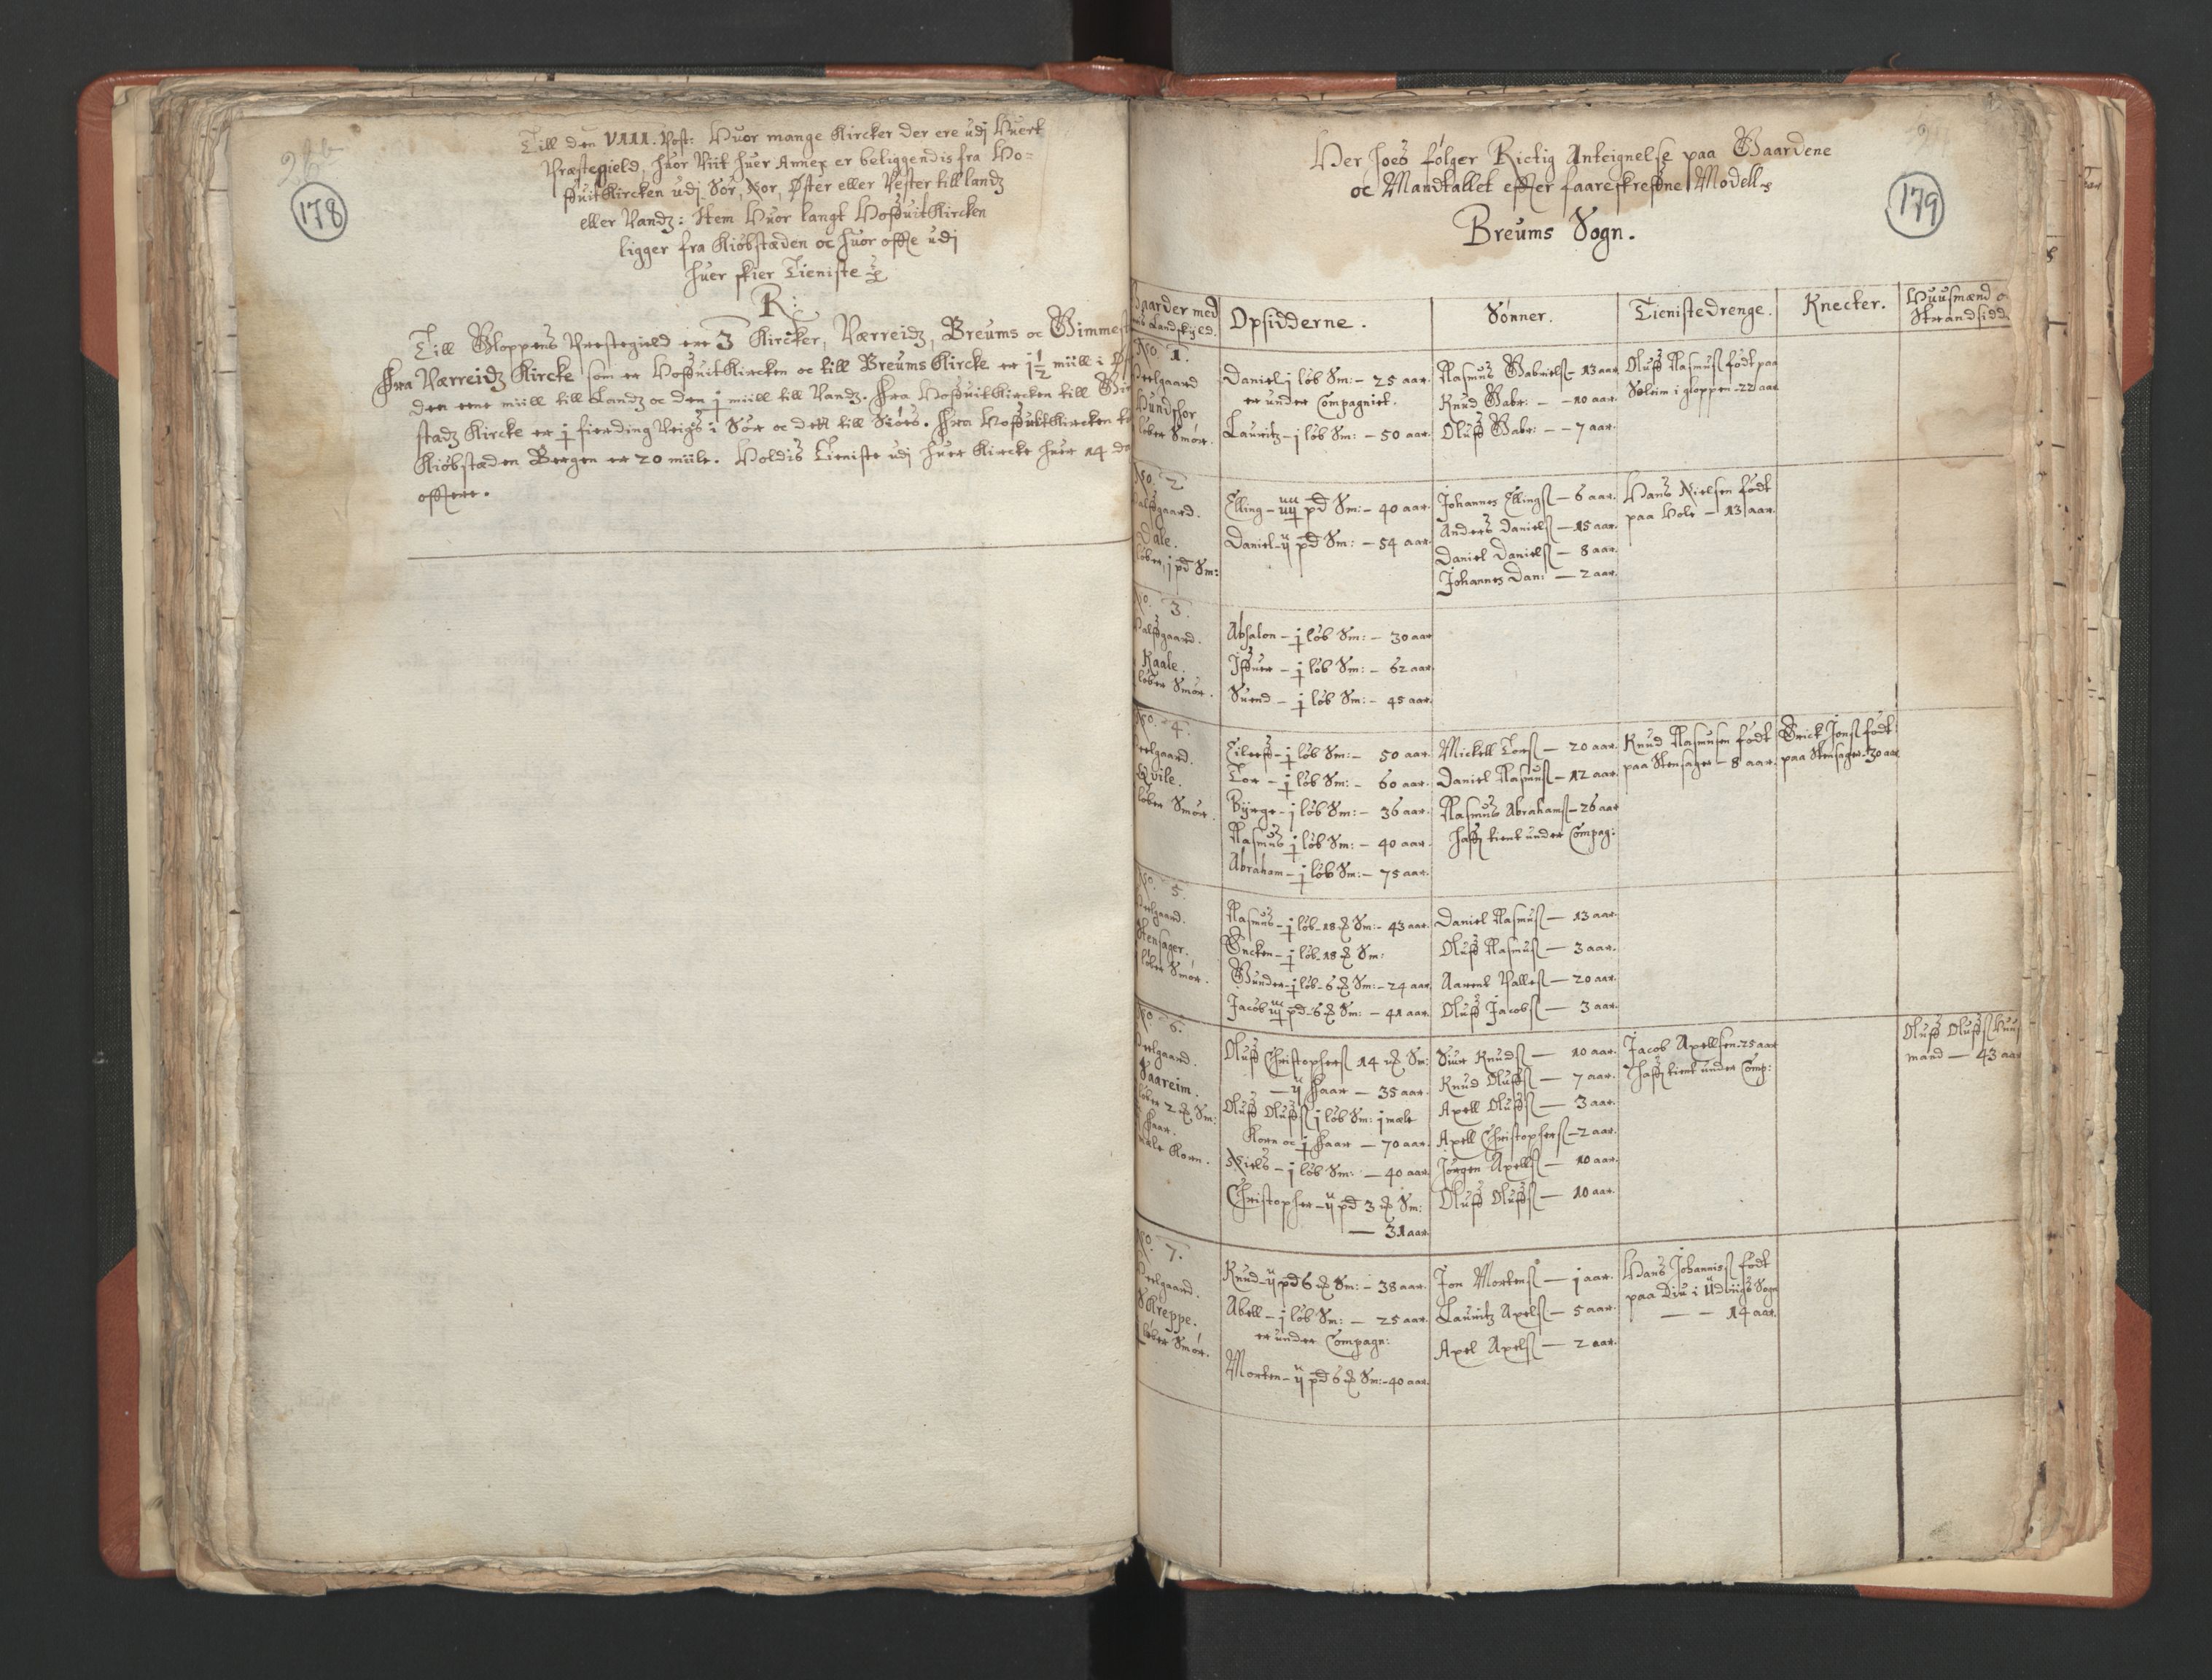 178
Till den VIII. Post: Huor mange Kircker der ere udj Huert
Præstegield, huor Viit huer Annex er beliggendis fra Ho-
ffuitKircken udj Sør, Nor, Øster eller Vester till landz
eller Vandz: Item Huor langt HoffuitKircken
ligger fra Kiöbstæden oc huor offte udj
huer skier Tieniste
R:
Till Gloppens Præstegield ere 3 Kircker, Værreidz, Breums oc Gimmest
Fra Værreidz Kircke som er HoffuitKircken oc till Breums Kircke er 1½ miill i
den eene miill till Landz oc den j miill till Vandz. Fra HoffuitKircken till Gim
stadz Kircke er j fierding Veigs i Sør oc dett till Siöes. Fra HoffuitKircken
Kiöbstæden Bergen er 20 miile. Holdis Tieniste udj huer Kircke huer 14 da
offtere.
179
Her hoes følger Rictig Anteignelse paa Gaardene
oc Mandtallet effter faareskreffne Modell
Breums Sogn.
Gaarder med
Landskyld.
Opsidderne.
Sönner.
Tienistedrenge.
Knecter.
Huusmænd o
Strandsidd
No. 1.
Heelgaard
Hundskor
löber Smör.
Daniel j löb Sm: - 25 aar.
er under Compagniet.
Lauritz - j löb Sm: - 50 aar.
Rasmus Gabriels - 13 aar
Knud Gabr: - - 10 aar.
Oluff Gabr: - - 7 aar.
Oluff Rasmus födt paa
Soleim i gloppen - 22 aar
No. 2
Halffgaard.
Dale.
löber, j pd Sm:
Elling - iiij pd Sm: - 40 aar.
Daniel - ij pd Sm: - 54 aar.
Johannes Ellings - 6 aar.
Anders Daniels - 15 aar.
Daniel Daniels - 8 aar.
Johannes Dan: - 2 aar.
Hans Nielsen födt
paa Hole - 13 aar.
No. 3.
Halffgaard.
Kaale.
löber Smör.
Absalon - j löb Sm: - 30 aar
Iffuer - j löb Sm: - 62 aar.
Suend - j löb Sm: - 45 aar.
No. 4.
Heelgaard.
Quile.
löber Smör.
Eileff - j löb Sm: - 50 aar.
Tor - j löb Sm: - 60 aar.
Byrge - j löb Sm: - 36 aar.
Rasmus j löb Sm: - 40 aar.
Abraham - j löb Sm: - 75 aar.
Mickell Tors - 20 aar.
Daniel Rasmus - 12 aar.
Rasmus Abrahams - 26 aar
haffr tient under Compag:
Knud Rasmusen födt
paa Stensager - 8 aar.
Erick Jons födt
paa Stensager - 30 aar
No. 5.
Heelgaard.
Stensager.
löber Smör.
Rasmus - j löb - 18 Sm: - 43 aar.
Encken - j löb - 18 Sm:
Gunder - j löb - 6 Sm: - 24 aar.
Jacob iij pd - 6 Sm: - 41 aar.
Daniel Rasmus - 13 aar.
Oluff Rasmus - 3 aar.
Aarent Palles - 20 aar.
Oluff Jacobs - 3 aar.
No. 6.
Heelgaard.
Saareim.
löber 2 Sm:
Faar.
mæle Korn.
Oluff Christophers 14 Sm:
- ij Faar - 35 aar.
Oluff Oluffs j löb Sm: j mæle
Korn oc j Faar - 70 aar.
Niels - j löb Sm: - 40 aar.
Christopher - ij pd 3 Sm:
- 31 aar.
Siur Knuds - 10 aar.
Knud Oluffs - 7 aar.
Axell Oluffs - 3 aar.
Axell Christophers - 2 aar.
Jörgen Axells - 10 aar.
Oluff Oluffs - 10 aar.
Jacob Axellsen - 25 aar
haffr tient under Comp:
Oluff Oluffs Huus
mand - 43 aar
No. 7.
Heelgaard.
Skreppe.
löber Smör.
Knud - ij pd 6 Sm: - 38 aar.
Abell - j löb Sm: - 25 aar.
er under Compagn:
Morten - ij pd 6 Sm: - 40 aar.
Jon Mortens - j aar.
Lauritz Axels - 5 aar.
Axel Axels - 2 aar.
Hans Johannis födt
paa Diu i Udviigs Sogn
- - 14 aar.